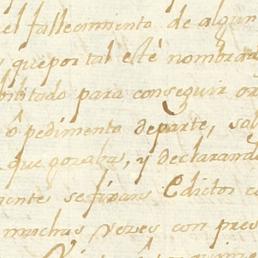 el fallecimiento de algun
y quepor tal esté nombrad
bilitado para conseguir or
ô pedimento departe, sob
que gozaba, y declarand
mente sefixan Edictos c
muchas vezes con pres